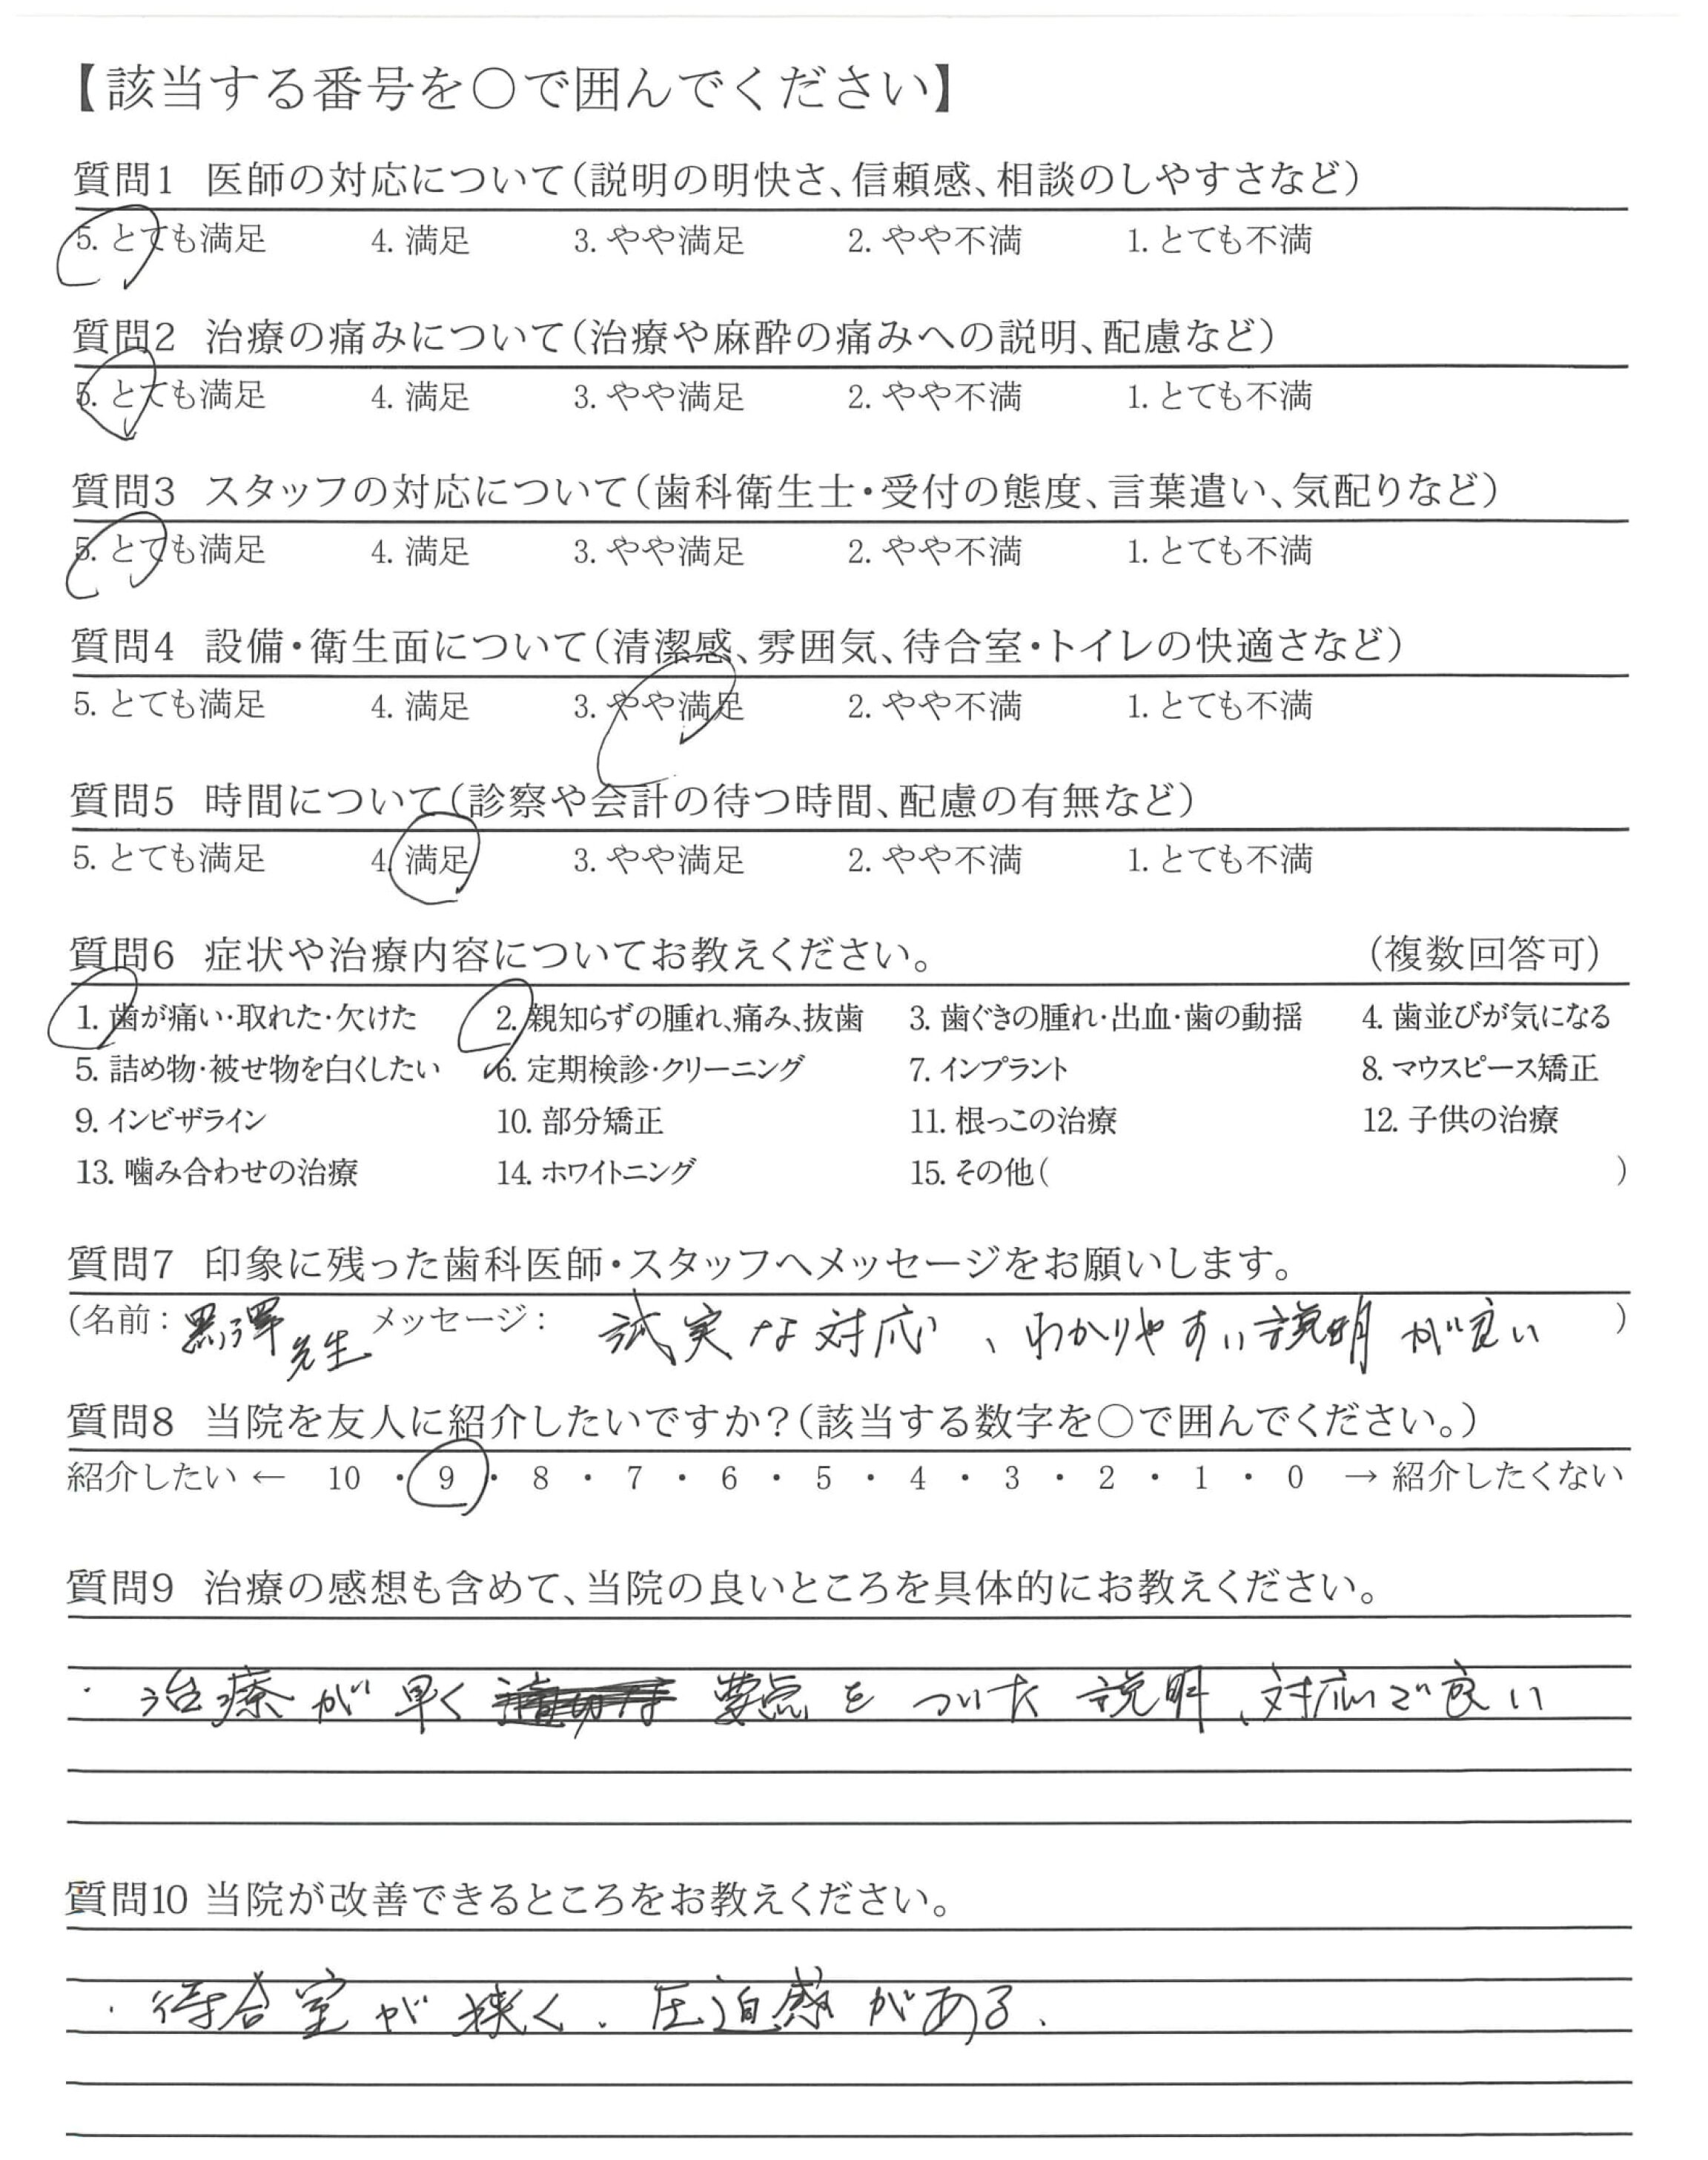 【該当する番号を○で囲んでください】
質問1 医師の対応について(説明の明快さ、信頼感、相談のしやすさなど)
5. とても満足 4. 満足 3. やや満足 2. やや不満 1. とても不満
質問2 治療の痛みについて(治療や麻酔の痛みへの説明、配慮など)
5. とても満足 4. 満足 3. やや満足 2. やや不満 1. とても不満
質問3 スタッフの対応について(歯科衛生士・受付の態度、言葉遣い、気配りなど)
5. とても満足 4. 満足 3. やや満足 2. やや不満 1. とても不満
質問4 設備・衛生面について(清潔感、雰囲気、待合室・トイレの快適さなど)
5. とても満足 4. 満足 3. やや満足 2. やや不満 1. とても不満
質問5 時間について(診察や会計の待つ時間、配慮の有無など)
5. とても満足 4. 満足 3. やや満足 2. やや不満 1. とても不満
質問6 症状や治療内容についてお教えください。 (複数回答可)
1. 歯が痛い・取れた・欠けた 2. 親知らずの腫れ、痛み、抜歯 3. 歯ぐきの腫れ・出血・歯の動揺 4. 歯並びが気になる
5. 詰め物・被せ物を白くしたい 6. 定期検診・クリーニング 7. インプラント 8. マウスピース矯正
9. インビザライン 10. 部分矯正 11. 根っこの治療 12. 子供の治療
13. 噛み合わせの治療 14. ホワイトニング 15. その他( )
質問7 印象に残った歯科医師・スタッフへメッセージをお願いします。
(名前: 黒澤先生 メッセージ: 誠実な対応、わかりやすい説明が良い )
質問8 当院を友人に紹介したいですか?(該当する数字を○で囲んでください。)
紹介したい ← 10 ・ 9 ・ 8 ・ 7 ・ 6 ・ 5 ・ 4 ・ 3 ・ 2 ・ 1 ・ 0 → 紹介したくない
質問9 治療の感想も含めて、当院の良いところを具体的にお教えください。
・治療が早く 要点をついた説明、対応で良い
質問10 当院が改善できるところをお教えください。
・待合室が狭く、圧迫感がある.